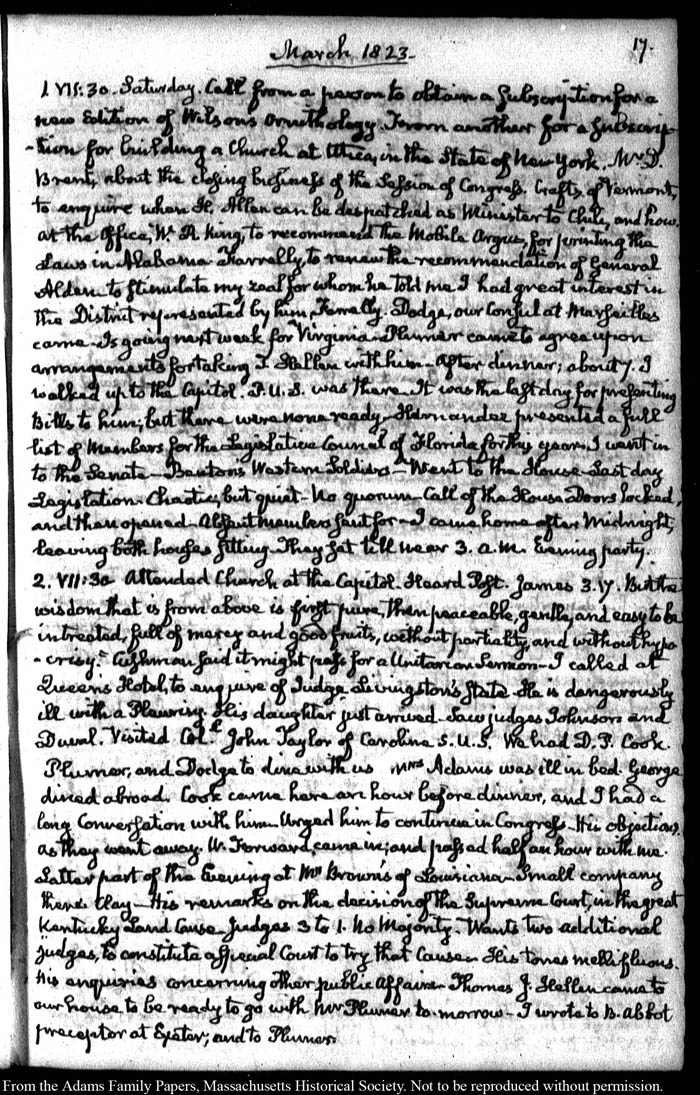 17.
March 1823.
1. VII:30. Saturday. Call from a person to obtain a subscription for a
new Edition of Wilson's Ornithology. From another for a subscrip-
-tion for building a Church at Utica, in the State of New York. Mr. D.
Brent, about the closing business of the Session of Congress. Crafts, of Vermont,
to enquire when H. Allen can be despatched as Minister to Chili, and how.
at the Office, W. R. King, to recommend the Mobile Argus, for printing the
Laws in Alabama. Farrelly, to renew the recommendation of General
Alden to stimulate my zeal for whom he told me I had great interest in
the District represented by him, Farrelly. Dodge, our Consul at Marseilles
came. Is going next week for Virginia. Plumer came to agree upon
arrangements for taking J. Hellen with him. After dinner; about 7. I
walked up to the Capitol. P.U.S. was there. It was the last day for presenting
Bills to him; but there were none ready. Hernandez presented a full
list of Members for the Legislative Council of Florida for this year. I went in
to the Senate. Benton's Western Soldiers. Went to the House. Last day
Legislation. Chaotic, but quiet. No quorum. Call of the House. Doors locked,
and then opened. Absent members sent for. I came home after Midnight,
leaving both houses sitting. They sat till near 3. a.m. Evening party.
2. VII:30 Attended Church at the Capitol. Heard Post. James 3.17. But the
wisdom that is from above is first pure, then peaceable, gentle, and easy to be
intreated, full of mercy and good fruits, without partiality, and without hypo
-crisy." Cushman said it might pass for a Unitarian Sermon. I called at
Queen's Hotel, to enquire of Judge Livingston's State. He is dangerously
ill with a Pleurisy. His daughter just arrived. Saw judges Johnson and
Duval. Visited Coll. John Taylor of Caroline S.U.S. We had D. P. Cook.
Plumer, and Dodge to dine with us Mrs Adams was ill in bed. George
dined abroad. Cook came here an hour before dinner, and I had a
long Conversation with him. Urged him to continue in Congress. His objections.
as they went away. W. Forward, came in; and passed half an hour with me.
Latter part of the Evening at Mr Brown's of Louisiana. Small company
there. Clay. His remarks on the decision of the Supreme Court, in the great
Kentucky Land Cause. Judges 3 to 1. No Majority. Wants two additional
judges, to constitute a special Court to try that Cause. His tones mellifluous.
His enquiries concerning other public affairs. Thomas J. Hellen came to
our house to be ready to go with Mr Plumer to-morrow. I wrote to B. Abbot
preceptor at Exeter; and to Plumer.
From the Adams Family Papers, Massachusetts Historical Society. Not to be reproduced without permission.